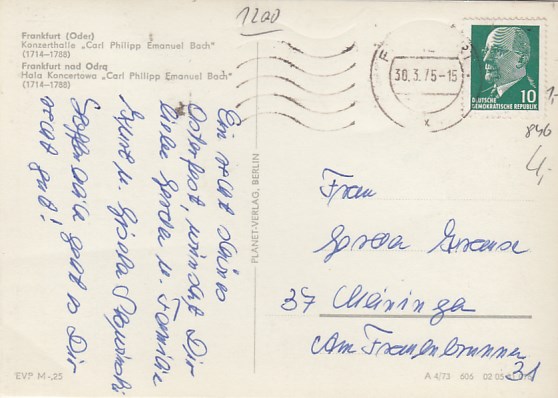 1200
Frankfurt (Oder)
Konzerthalle „Carl Philipp Emanuel Bach"
(1714—1788)
Frankfurt nad Odrą
Hala Koncertowa „Carl Philipp Emanuel Bach"
(1714—1788)
Ein recht schönes
Osterfest, wünscht Dir
liebe Gerda u. Familie
Kurt u. Gisela
Hoffentlich geht es Dir
recht gut!
PLANET-VERLAG, BERLIN
30.3.75-15
10
DEUTSCHE
DEMOKRATISCHE REPUBLIK
1,-
846
4,-
Frau
Gerda
37 Meiningen
Am Frauenbrunnen
31
EVP M -,25
A 4/73 606